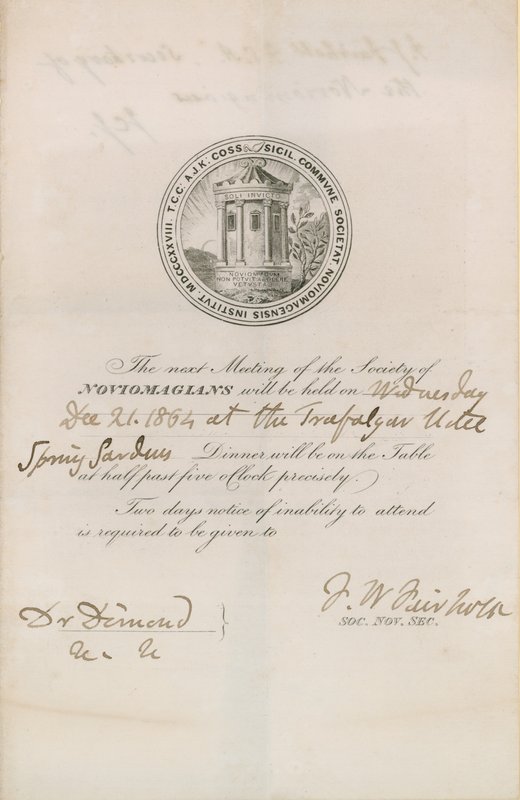 MDCCCXXVIII. T.C.C. A.J.K. COSS SICIL. COMMVNE SOCIETAT. NOVIOMAGENSIS INSTITVT.
SOLI INVICTO
NOVIOMAGVM
NON POTVIT ABOLERE
VETVSTAS
The next Meeting of the Society of
NOVIOMAGIANS will be held on Wednesday
Dec 21. 1864 at the Trafalgar Hotel
Spring Gardens Dinner will be on the Table
at half past five o'Clock precisely.
Two days notice of inability to attend
is required to be given to
F. W Fairholt
SOC. NOV. SEC.
Dr Diamond